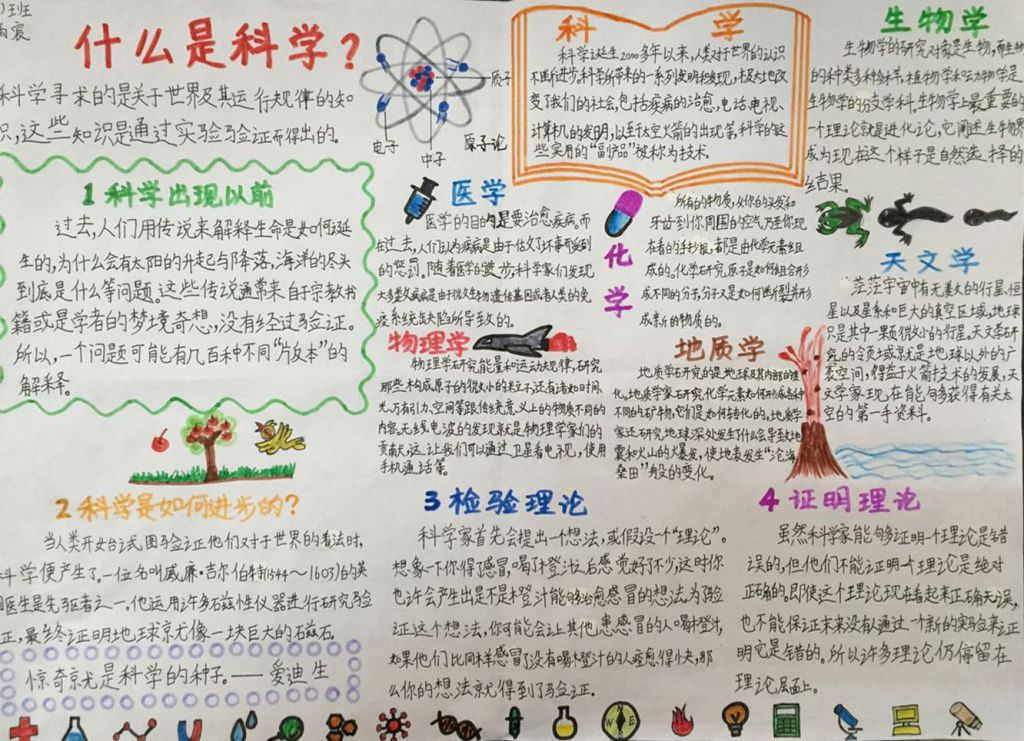 )班
雨宸
什么是科学?
科学寻求的是关于世界及其运行规律的知
识,这些知识是通过实验验证而得出的。
质子
电子
中子
原子论
科 学
科学诞生2000多年以来,人类对于世界的认识
不断进步,科学所带来的一系列发明和发现,极大地改
变了我们的社会,包括疾病的治愈,电话、电视、
计算机的发明,以至于太空火箭的出现等,科学的这
些实用的“副产品”被称为技术。
生物学
生物学的研究对象是生物,而生物
的种类多种多样,植物学和动物学是
生物学的分支学科。生物学上最重要的
一个理论就是进化论,它阐述生物界
成为现在这个样子是自然选择的
结果。
1 科学出现以前
过去,人们用传说来解释生命是如何诞
生的,为什么会有太阳的升起与降落,海洋的尽头
到底是什么等问题。这些传说通常来自于宗教书
籍或是学者的梦境奇想,没有经过验证。
所以,一个问题可能有几百种不同“版本”的
解释。
医学
医学的目的是要治愈疾病。而
在过去,人们认为疾病是由于他做了坏事而受到
的惩罚,随着医学的进步,科学家们发现
大多数疾病是由于微生物、遗传基因或者人类的免
疫系统缺陷所导致的。
化
学
所有的物质,从你的头发和
牙齿到你周围的空气,乃至你现
在看的手抄报,都是由化学元素组
成的。化学研究原子是如何组合形
成不同的分子,分子又是如何断裂并形
成新的物质的。
天文学
茫茫宇宙中有无数的行星、恒
星以及星系和巨大的真空区域,地球
只是其中一颗很小的行星。天文学研
究的领域就是地球以外的广
袤空间,得益于火箭技术的发展,天
文学家现在能够获得有关太
空的第一手资料。
物理学
物理学研究能量和运动规律,研究
那些构成原子的微小的粒子,还有诸如时间、
光、万有引力、空间等跟传统意义上的物质不同的
内容。无线电波的发现就是物理学家们的
贡献,这让我们可以通过卫星看电视,使用
手机通话等。
地质学
地质学研究的是地球及其内部的变
化。地质学家研究化学元素如何形成各种
不同的矿物,它们是如何转化的。地质学
家还研究地球深处发生了什么会导致地
震和火山的爆发,使地表发生“沧海
桑田”般的变化。
2 科学是如何进步的?
当人类开始试图验证他们对于世界的看法时,
科学便产生了,一位名叫威廉·吉尔伯特(1544~1603)的英
国医生是先驱者之一。他运用许多磁性仪器进行研究验
证,最终证明地球就像一块巨大的磁石。
惊奇就是科学的种子。——爱迪生
3 检验理论
科学家首先会提出一个想法,或假设个“理论”。
想象一下你得感冒,喝了橙汁后感觉好了不少,这时你
也许会产生出是不是橙汁能够治愈感冒的想法,为验
证这个想法,你可能会让其他患感冒的人喝橙汁,
如果他们比同样感冒了没有喝橙汁的人痊愈得快,那
么你的想法就得到了验证。
4 证明理论
虽然科学家能够证明一个理论是错
误的,但他们不能证明一个理论是绝对
正确的。即使这个理论现在看起来正确无误,
也不能保证未来没有人通过一个新的实验来证
明它是错的。所以许多理论仍停留在
理论层面上。
N
W E
S